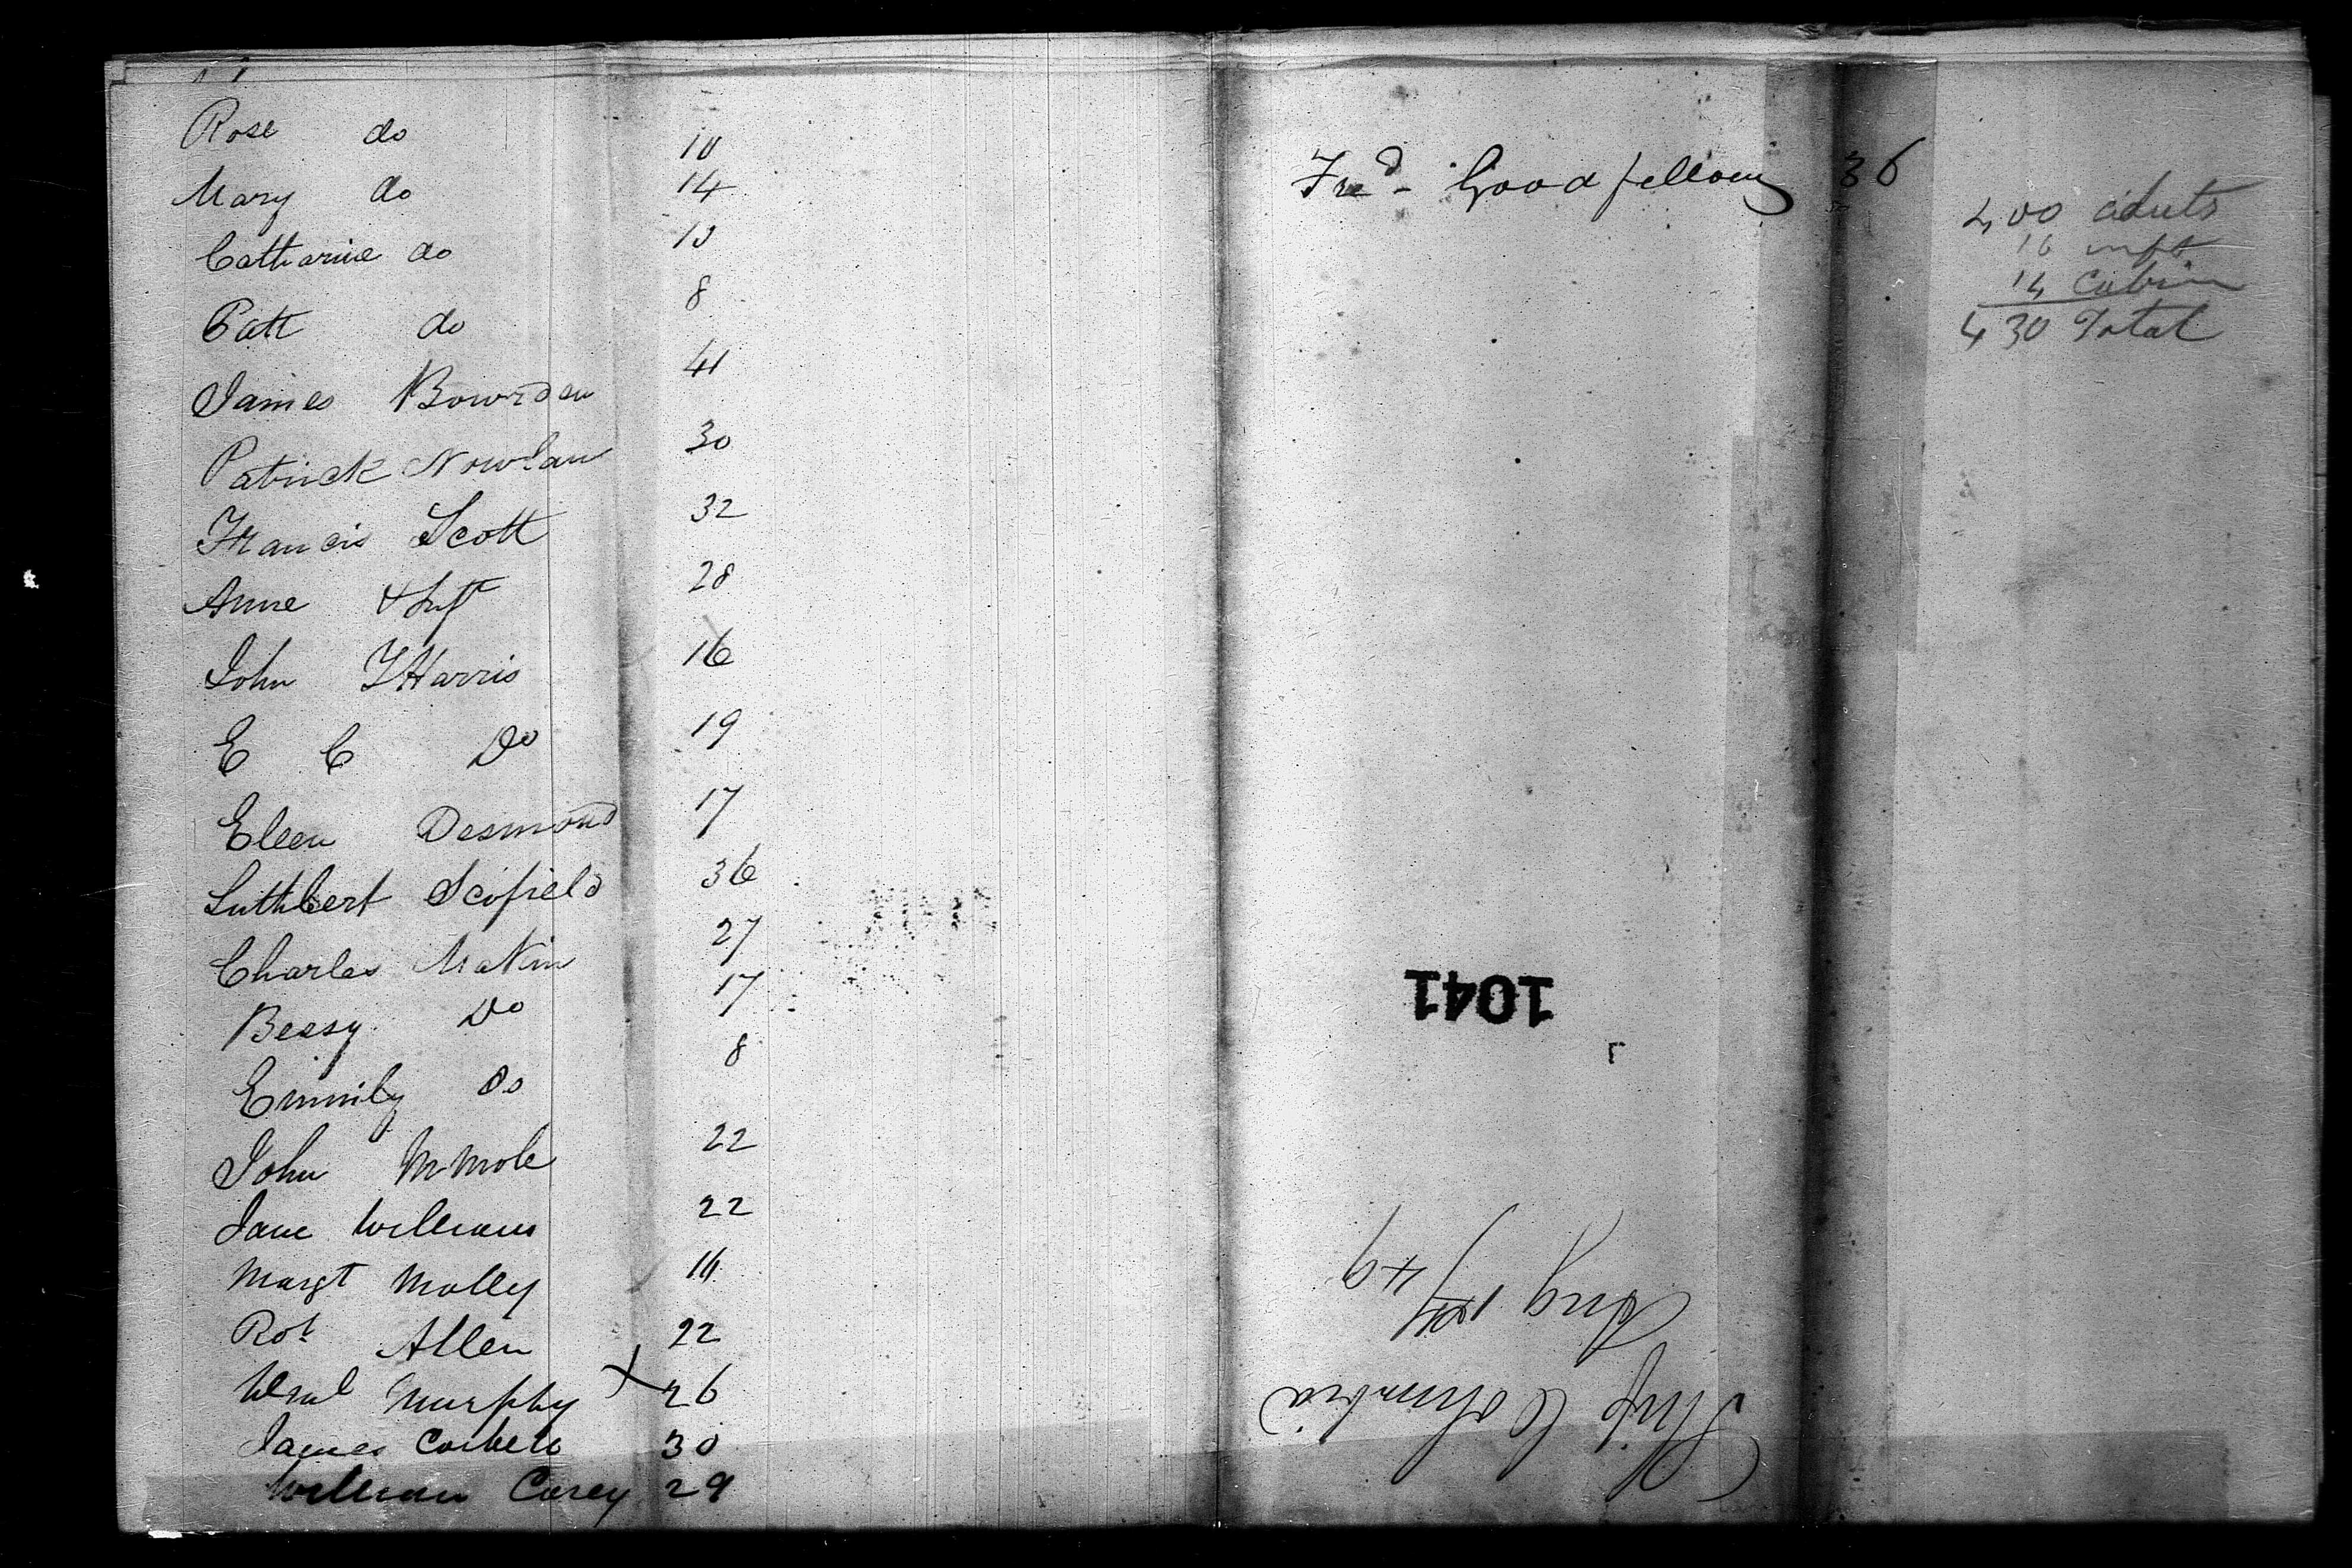 Rose do 10
Mary do 14
Catharine do 10
Patt do 8
James Bowrden 41
Patrick Nowlan 30
Francis Scott 32
Anne & Inft 28
John T Harris 16
E C Do 19
Eleen Desmond 17
Cuthbert Scofield 36
Charles Makin 27
Bessy Do 17
Emmily do 8
John 22
Jane Williams 22
Margt Molly
Rot Allen 22
Murphy 26
James Corbett 30
William Carey 29
Fred - Goodfellow 36
400 aduts
16 inft
14 Cabin
430 Total
1041
Ship Columbia
Aug 49